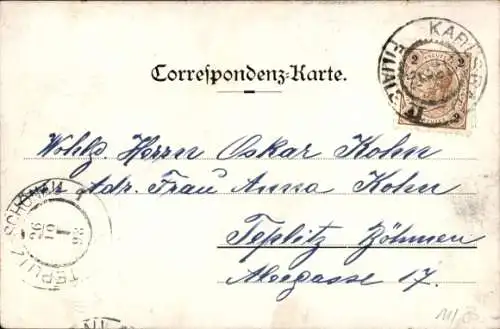 Correspondenz-Karte.
2 2
KARLSBA
FILIALE
Wohlg. Herrn Oskar Kohn
per Adr. Frau Anna Kohn
Teplitz Böhmen
Alleegasse 17.
TEPLITZ-SCHÖNAU 1